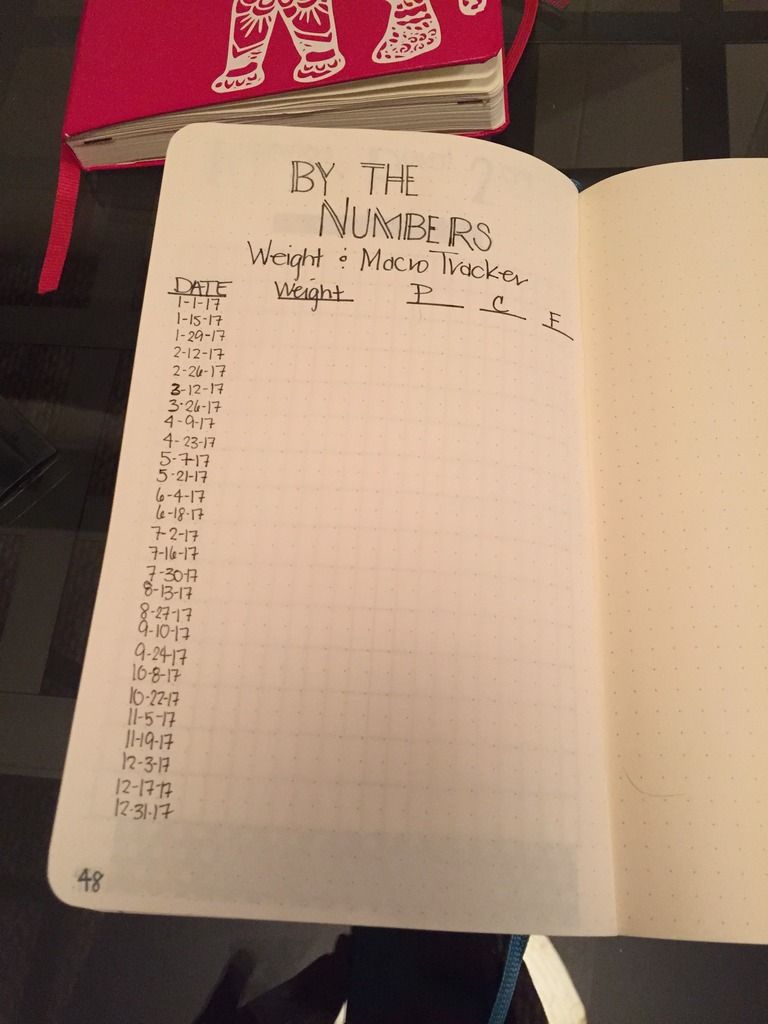 BY THE
NUMBERS
Weight & Macro Tracker
DATE Weight P C F
1-1-17
1-15-17
1-29-17
2-12-17
2-26-17
3-12-17
3-26-17
4-9-17
4-23-17
5-7-17
5-21-17
6-4-17
6-18-17
7-2-17
7-16-17
7-30-17
8-13-17
8-27-17
9-10-17
9-24-17
10-8-17
10-22-17
11-5-17
11-19-17
12-3-17
12-17-17
12-31-17
48